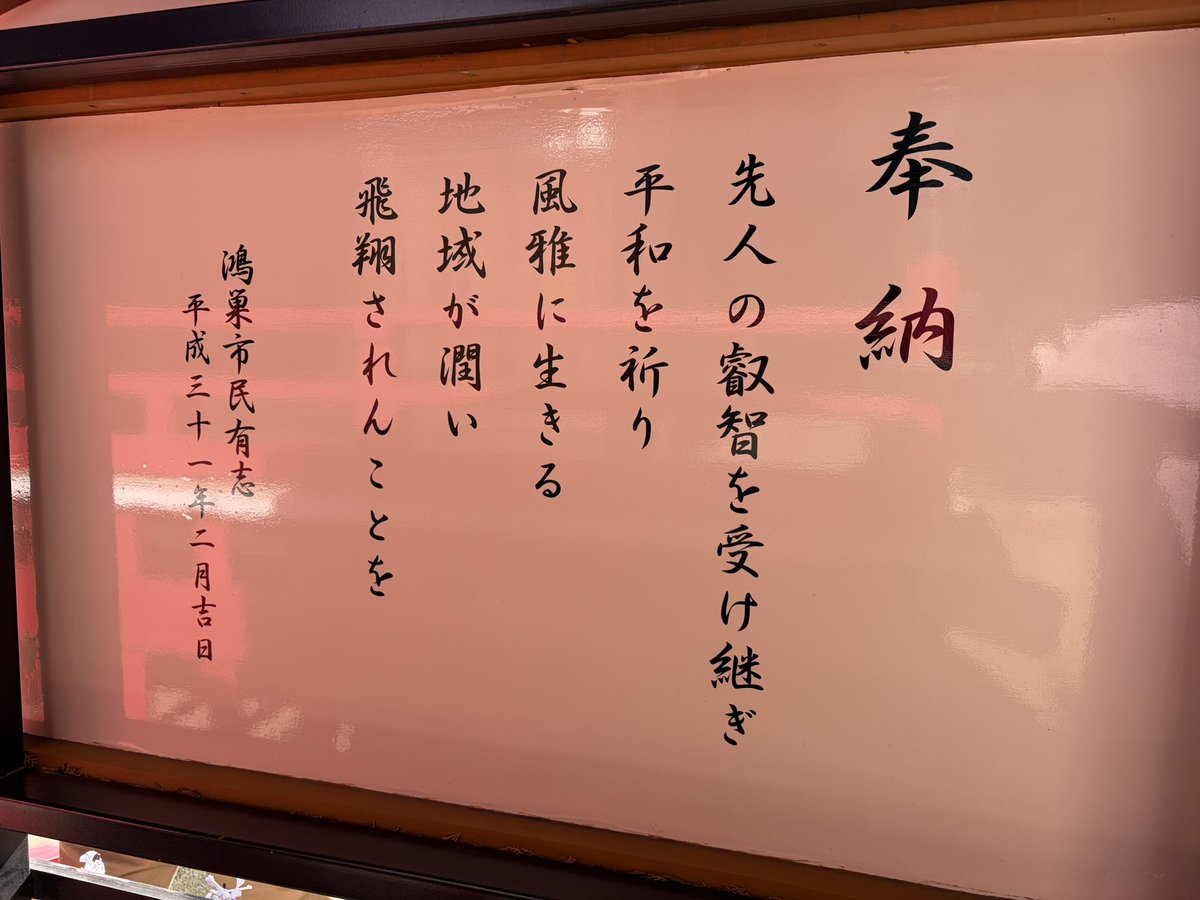 奉納
先人の叡智を受け継ぎ
平和を祈り
風雅に生きる
地域が潤い
飛翔されんことを
鴻巣市民有志
平成三十一年二月吉日